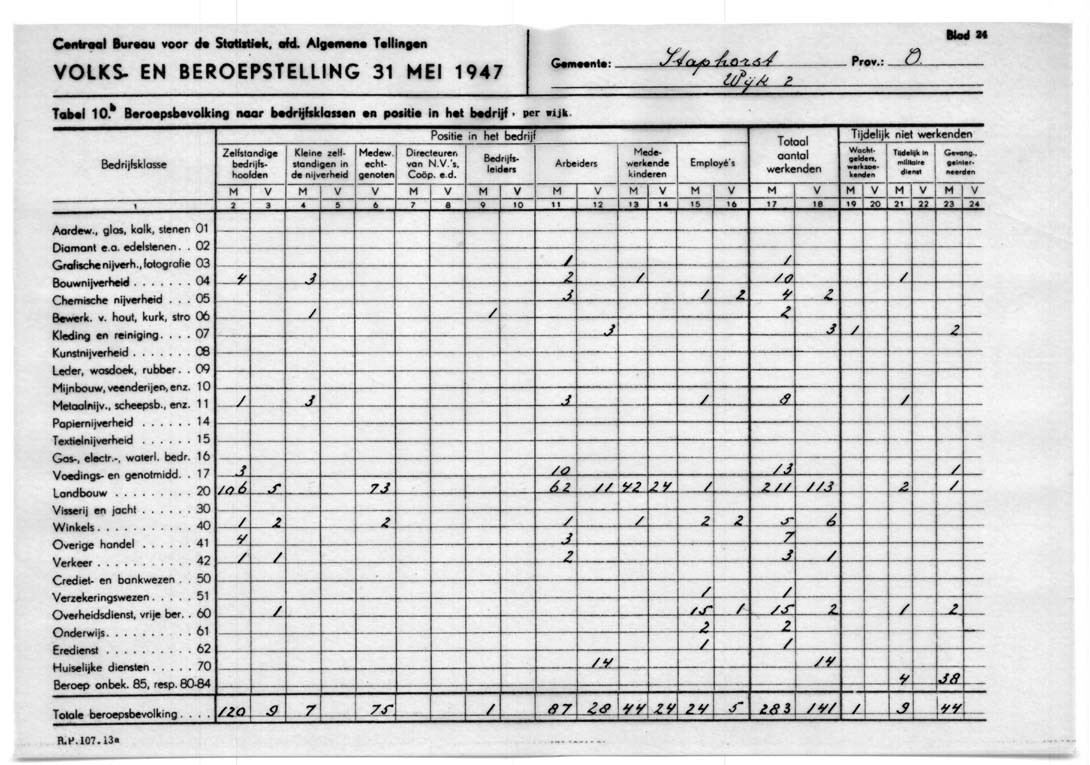 Centraal Bureau voor de Statistiek, afd. Algemene Tellingen
Blad 24
VOLKS- EN BEROEPSTELLING 31 MEI 1947
Gemeente: Staphorst Prov.: O.
Wijk 2
Tabel 10.b Beroepsbevolking naar bedrijfsklassen en positie in het bedrijf, per wijk.
Bedrijfsklasse
Positie in het bedrijf
Totaal aantal werkenden
Tijdelijk niet werkenden
Zelfstandige bedrijfshoofden
Kleine zelfstandigen in de nijverheid
Medew. echtgenoten
Directeuren van N.V.'s, Coöp. e.d.
Bedrijfsleiders
Arbeiders
Medewerkende kinderen
Employé's
Wachtgelders, werkzoekenden
Tijdelijk in militaire dienst
Gevang., geïnterneerden
M V M V V M V M V M V M V M V M V M V M V M V
1 2 3 4 5 6 7 8 9 10 11 12 13 14 15 16 17 18 19 20 21 22 23 24
Aardew., glas, kalk, stenen 01
Diamant e.a. edelstenen. . 02
Grafische nijverh., fotografie 03 1 1
Bouwnijverheid . . . . . . 04 4 3 2 1 10 1
Chemische nijverheid . . . 05 3 1 2 4 2
Bewerk. v. hout, kurk, stro 06 1 1 2
Kleding en reiniging. . . . 07 3 3 1 2
Kunstnijverheid . . . . . . . 08
Leder, wasdoek, rubber. . 09
Mijnbouw, veenderijen, enz. 10
Metaalnijv., scheepsb., enz. 11 1 3 3 1 8 1
Papiernijverheid . . . . . . 14
Textielnijverheid . . . . . . 15
Gas-, electr.-, waterl. bedr. 16
Voedings- en genotmidd. . 17 3 10 13 1
Landbouw . . . . . . . . . 20 106 5 73 62 11 42 24 1 211 113 2 1
Visserij en jacht . . . . . . 30
Winkels. . . . . . . . . . . 40 1 2 2 1 1 2 2 5 6
Overige handel . . . . . . 41 4 3 7
Verkeer . . . . . . . . . . 42 1 1 2 3 1
Crediet- en bankwezen . . 50
Verzekeringswezen. . . . . 51 1 1
Overheidsdienst, vrije ber. . 60 1 15 1 15 2 1 2
Onderwijs. . . . . . . . . . 61 2 2
Eredienst . . . . . . . . . 62 1 1
Huiselijke diensten . . . . . 70 14 14
Beroep onbek. 85, resp. 80-84 4 38
Totale beroepsbevolking . . . . 120 9 7 75 1 87 28 44 24 24 5 283 141 1 9 44
R.P.107.13a